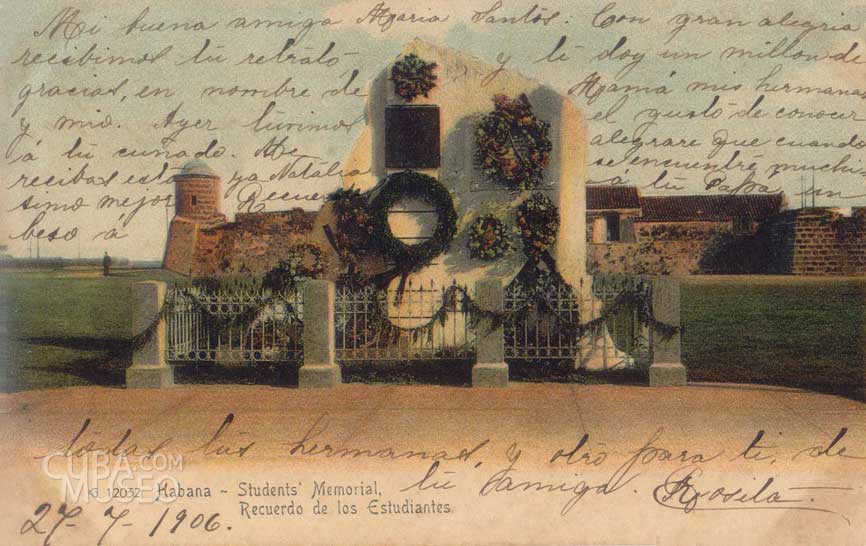 Mi buena amiga Maria Santos. Con gran alegria
recibimos tu retrato y ti doy un millon de
gracias, en nombre de Mamá mis hermanas
y mio. Ayer tuvimos el gusto de conocer
á tu cuñado. Me alegrare que cuando
recibas esta ya Natalia se encuentre muchi
simo mejor. Recuerdos á tu Papá, un
beso á
todas tus hermanas, y otro para ti, de
tu amiga. Rosita
CUBA.COM
MUSEO
G 12032 Habana - Students' Memorial,
Recuerdo de los Estudiantes.
27-7-1906.